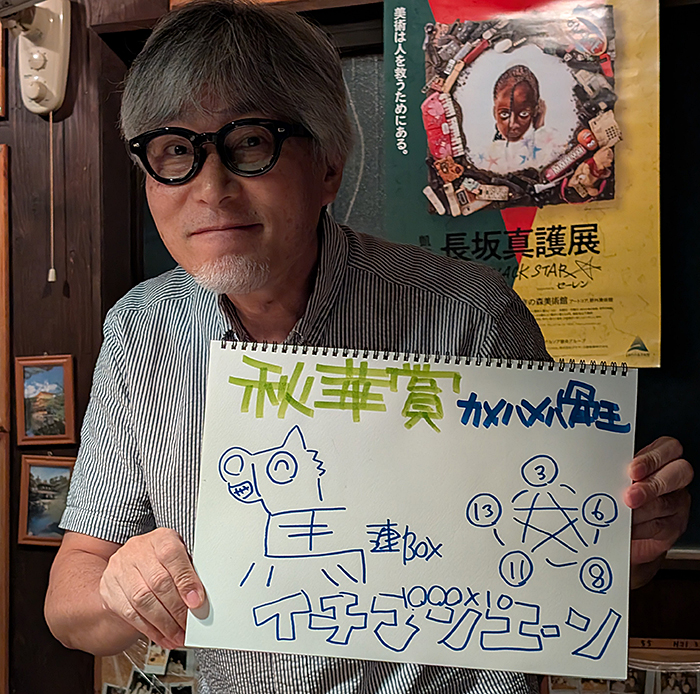 美術は人を救うためにある。
長坂真護展
BLACK STAR
の森美術館
秋華賞 カメハメハ骨王
連BOX
3
13
6
11
8
1000×10
イチマンエーン